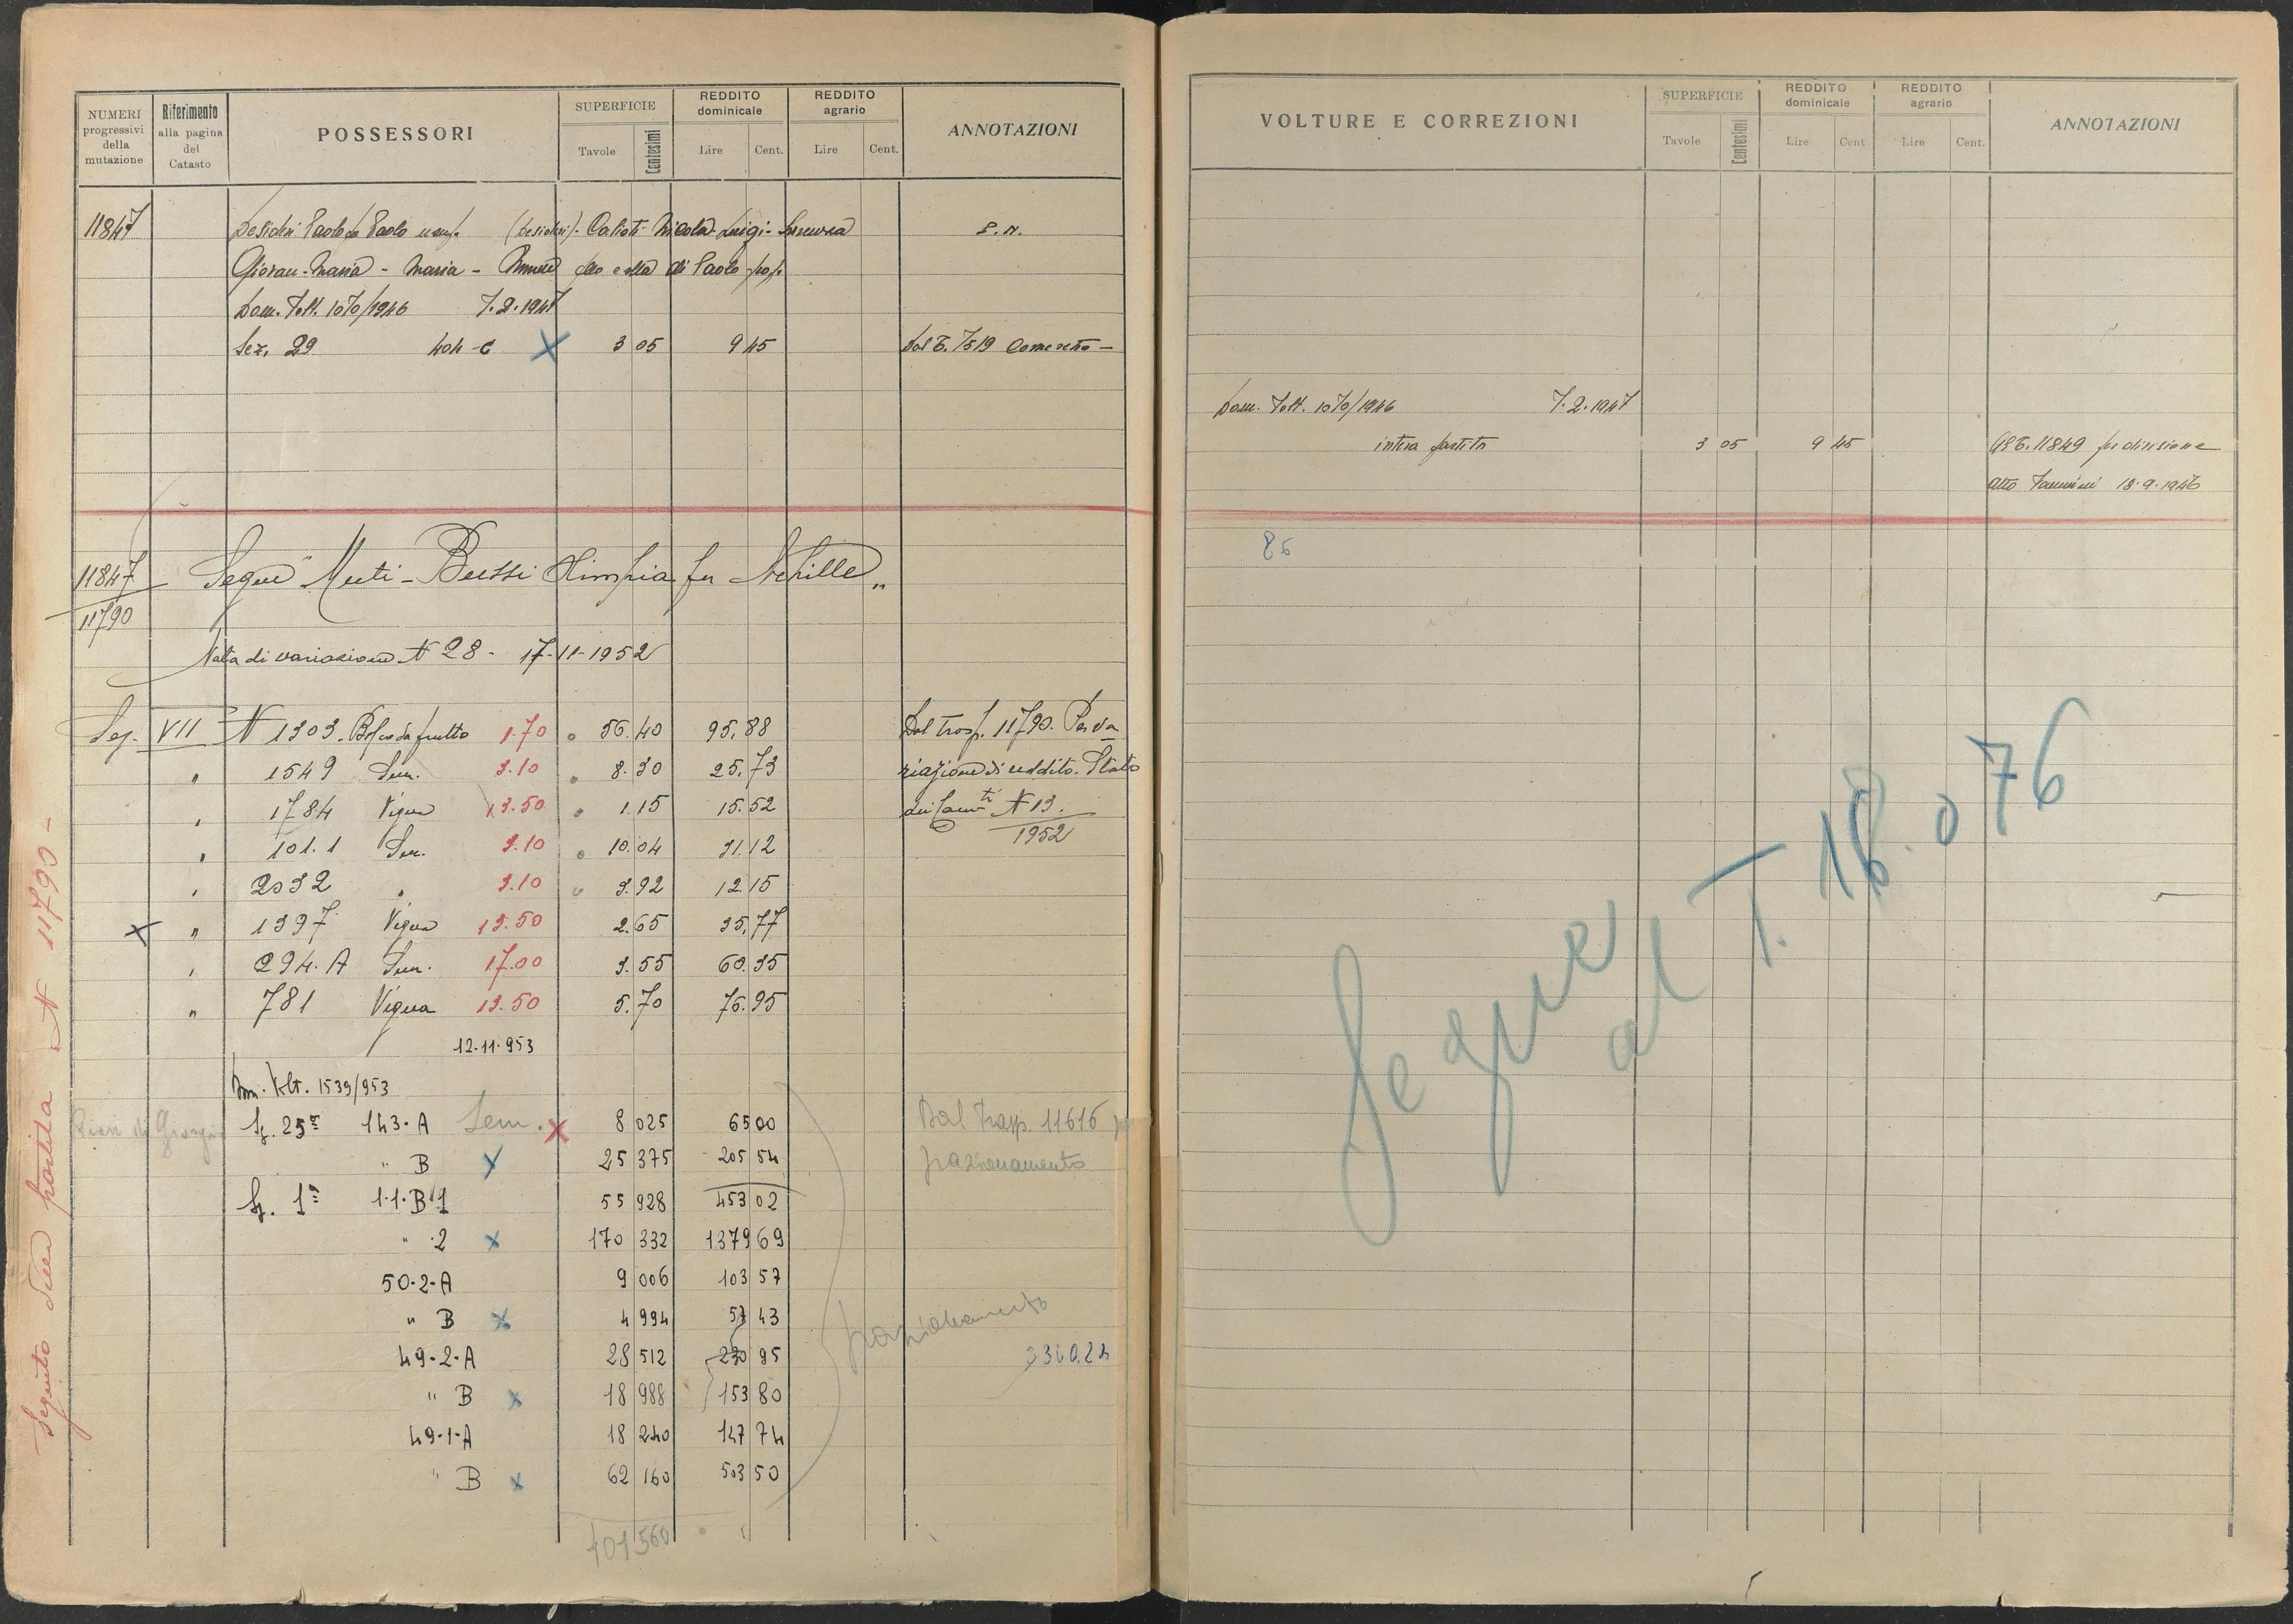 NUMERI progressivi della mutazione
Riferimento alla pagina del Catasto
POSSESSORI
SUPERFICIE Tavole Centesimi
REDDITO dominicale Lire Cent.
REDDITO agrario Lire Cent.
ANNOTAZIONI
11847 Desideri Paolo fu Paolo usuf. (Desideri). Nicola - Luigi - P. N.
Giovan-Maria - Maria - di Paolo prop.
Dom. Volt. 1070/1946 7.2.1947
Sez. 29 404-C X 3 05 9 45 Dal T. 7519
11847 Segue Muti-Bussi Olimpia fu Achille "
11790
Nota di variazione N 28 - 17-11-1952
Sez. VII N 1303. da frutto 1.70 56.40 95,88 Dal Trasp. 11790. Per va
" 1549 Sem. 3.10 8.30 25,73 riazione di reddito. Stato
" 1784 Vigna 13.50 1.15 15.52 dei N 13.
1952
" 101.1 Sem. 3.10 10.04 31.12
" 2032 " 3.10 3.92 12.15
X " 1397 Vigna 13.50 2.65 35,77
" 294. A Sem. 17.00 3.55 60.35
" 781 Vigna 13.50 5.70 76.95
12.11.953
Dom. Volt. 1539/953
Sz. 25ª 143-A Sem. X 8 025 65 00 Dal Trasp. 11616
" B X 25 375 205 54 frazionamento
Sz. 1ª 1.1.B.1 55 928 453 02
" .2 X 170 332 1379 69
50-2-A 9 006 103 57
" B X 4 994 57 43 frazionamento
49-2-A 28 512 230 95 3360.24
" B X 18 988 153 80
49-1-A 18 240 147 74
" B X 62 160 503 50
401 560
Seguito della partita N 11790 -
VOLTURE E CORREZIONI
SUPERFICIE Tavole Centesimi
REDDITO dominicale Lire Cent
REDDITO agrario Lire Cent.
ANNOTAZIONI
Dom. Volt. 1070/1946 7.2.1947
intera partita 3 05 9 45 Al T. 11849 per divisione
atto 18.9.1946
86
Segue
al T. 18.076